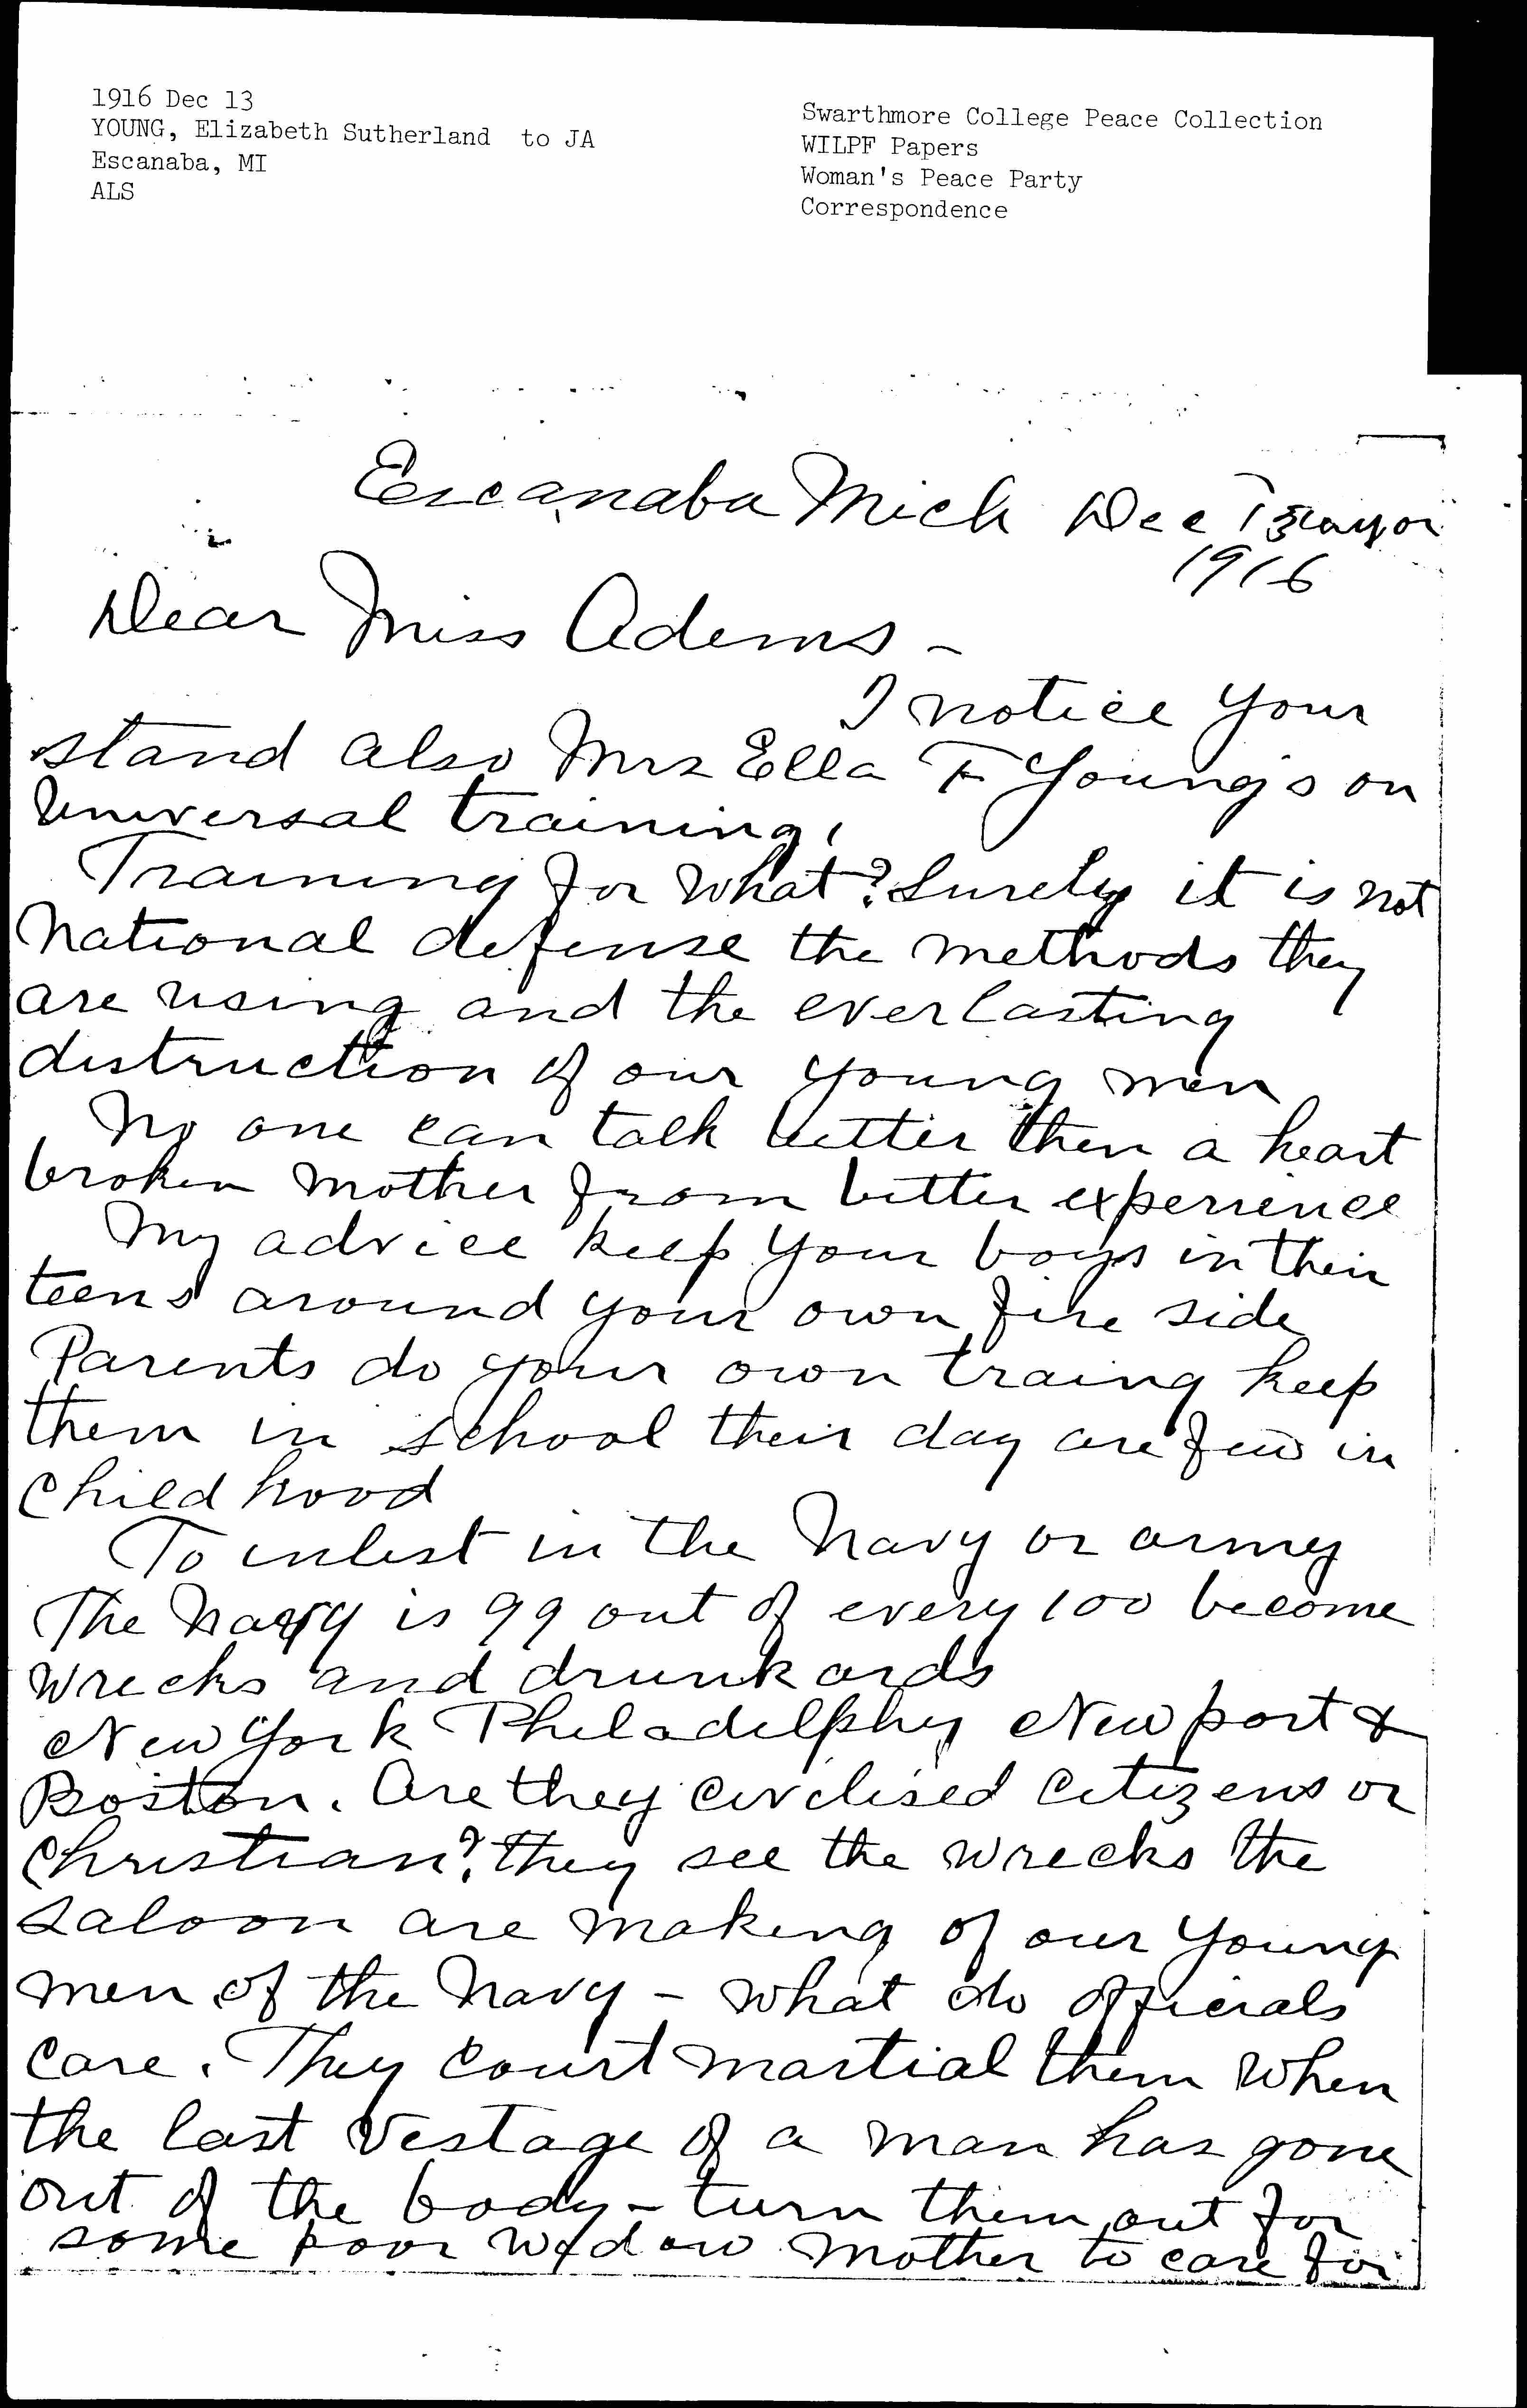 1916 Dec 13
YOUNG, Elizabeth Sutherland to JA
Escanaba, MI
ALS
Swarthmore College Peace Collection
WILPF Papers
Woman's Peace Party
Correspondence
Escanaba Mich Dec 13
1916
Dear Miss Adems -
I notice your
stand also Mrs Ella F Young's on
Universal training,
Training for what? Surely it is not
National defense the methods they
are using and the everlasting
distruction of our young men
No one can talk better then a heart
broken mother from bitter experience
My advice keep your boys in their
teens around your own fire side
Parents do your own traing keep
them in school their day are few in
Child hood
To inlist in the Navy or army
The Navy is 99 out of every 100 become
wrecks and drunk ards
New York Philadelphy New port &
Boston. Are they civilised Citizens or
Christian? they see the wrecks the
saloon are making of our young
men of the Navy - what do officials
care. They court martial them when
the last vestage of a man has gone
out of the body - turn them out for
some poor widow mother to care for